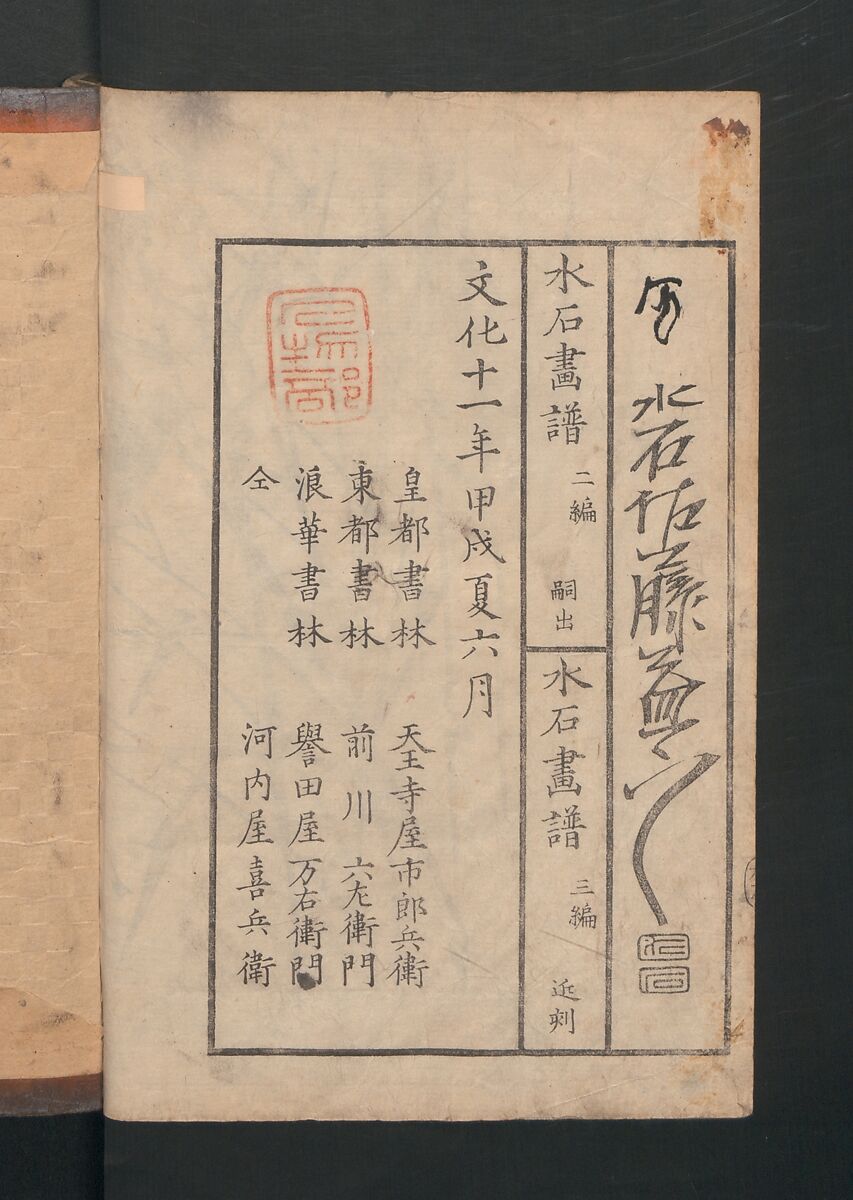 水石佐藤益之
水石畫譜 二編 嗣出
水石畫譜 三編 近刻
文化十一年甲戌夏六月
皇都書林 天王寺屋市郎兵衛
東都書林 前川六左衛門
浪華書林 譽田屋万右衛門
仝 河内屋喜兵衛